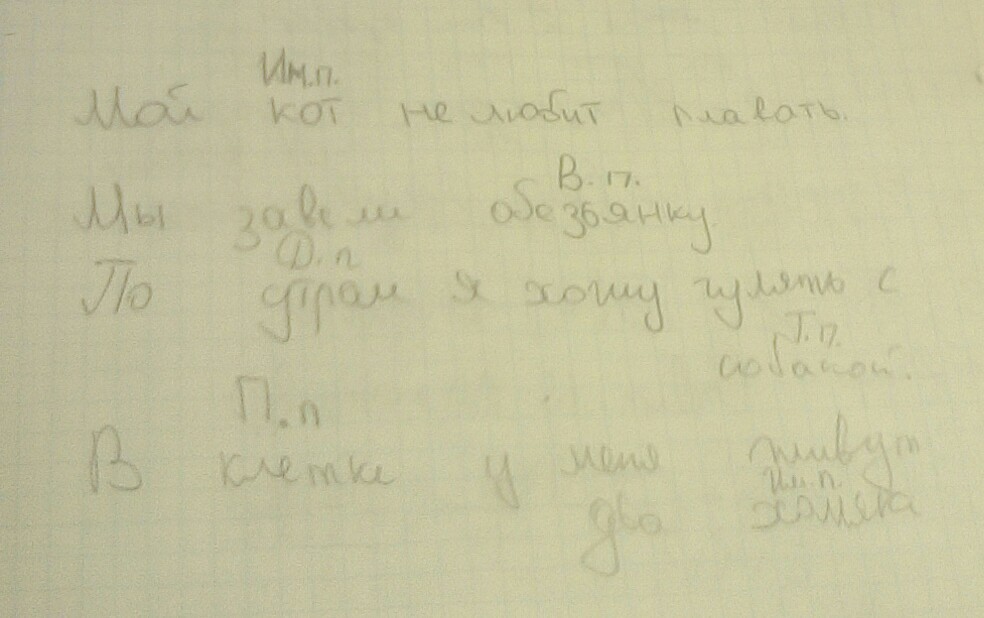 Им.п.
Мой кот не любит плавать.
В. п.
Мы завели обезьянку.
Д. п
По утрам я хожу гулять с
Т.п.
собакой.
П. п
В клетке у меня живут
Им. п.
два хомяка